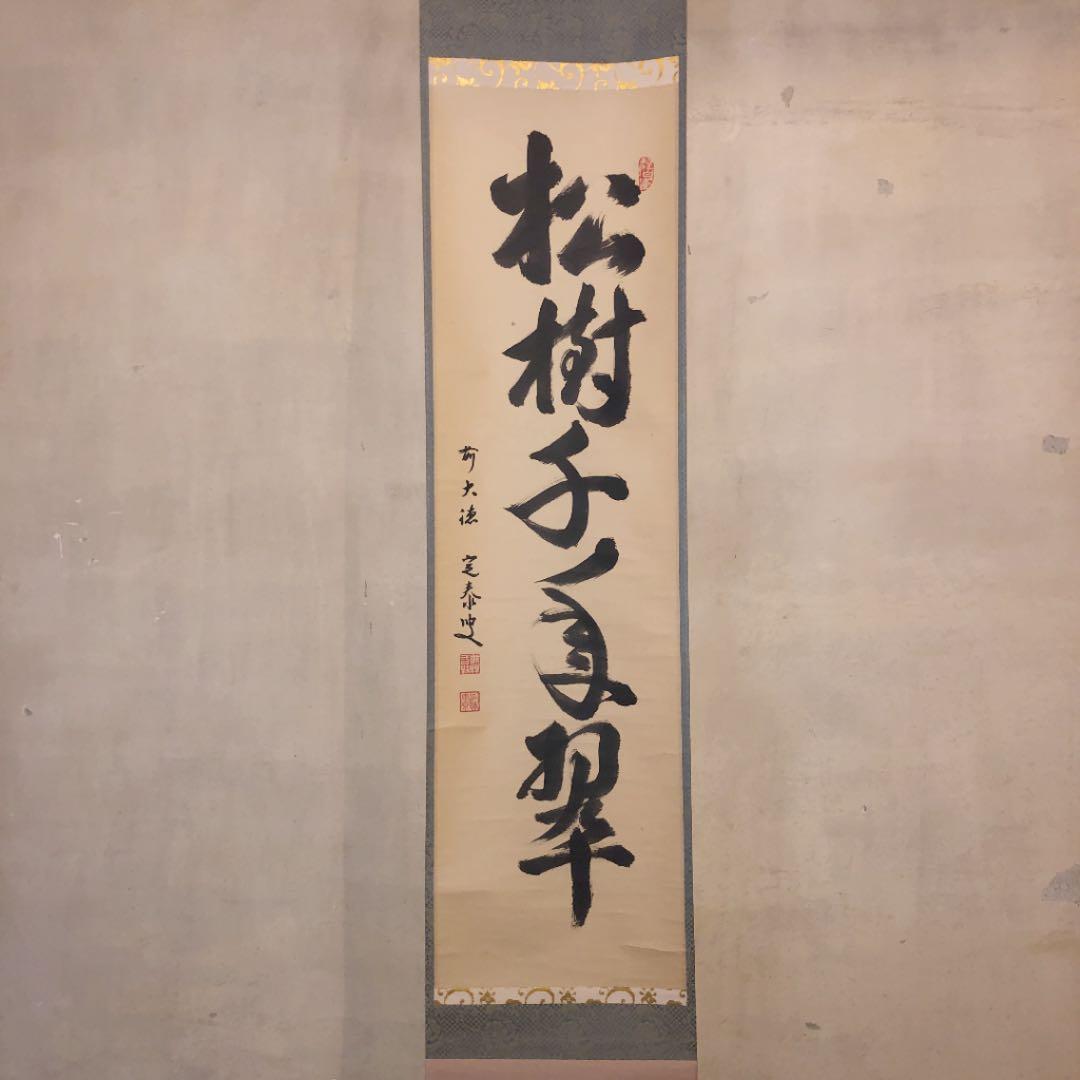 松樹千年翠
前大徳 寛泰叟